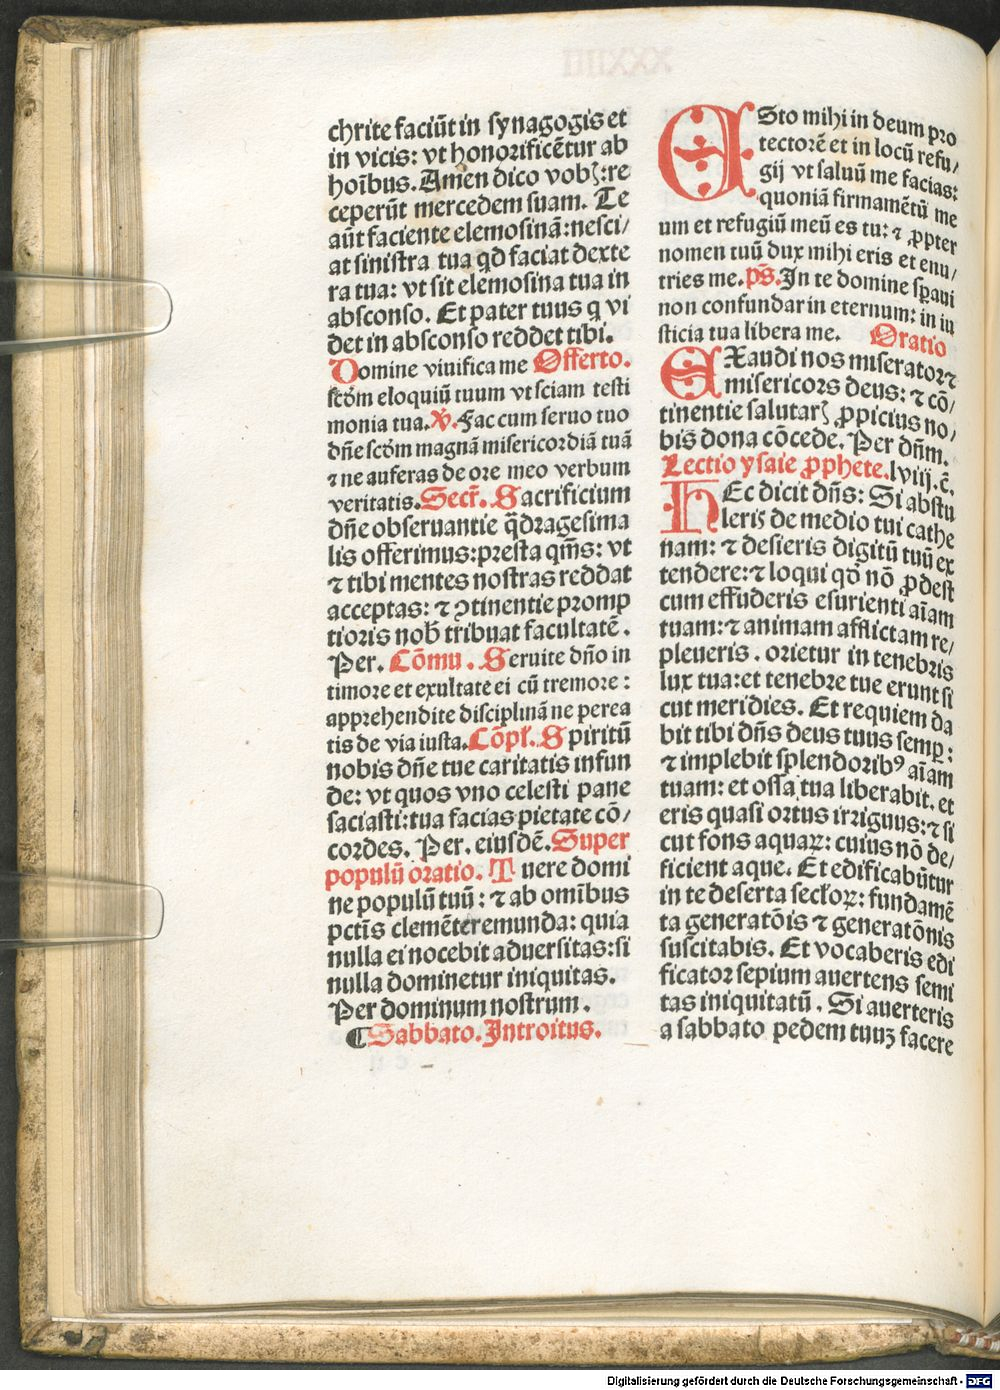 chrite faciūt in synagogis et
in vicis: vt honorificētur ab
hoībus. Amen dico vobꝭ: re
ceperūt mercedem suam. Te
aūt faciente elemosinā: nesci/
at sinistra tua qd faciat dexte
ra tua: vt sit elemosina tua in
absconso. Et pater tuus q vi
det in absconso reddet tibi.
Domine viuifica me Offerto.
scd̄m eloquiū tuum vt sciam testi
monia tua. ꝟ. Fac cum seruo tuo
dn̄e scd̄m magnā misericordiā tuā
⁊ ne auferas de ore meo verbum
veritatis. Secr̄. Sacrificium
dn̄e obseruantie q̄dragesima
lis offerimus: presta qm̄s: vt
⁊ tibi mentes nostras reddat
acceptas: ⁊ ↄtinentie promp
tioris nob̄ tribuat facultatē.
Per. Cōmu. Seruite dn̄o in
timore et exultate ei cū tremore:
apprehendite disciplinā ne perea
tis de via iusta. Cōpl̄. Spiritū
nobis dn̄e tue caritatis infun
de: vt quos vno celesti pane
saciasti: tua facias pietate cō/
cordes. Per. eiusdē. Super
populū oratio. Tuere domi
ne populū tuū: ⁊ ab om̄ibus
pctīs clemēter emunda: quia
nulla ei nocebit aduersitas: si
nulla dominetur iniquitas.
Per dominum nostrum.
¶ Sabbato. Introitus.
ESto mihi in deum pro
tectorē et in locū refu/
gij vt saluū me facias:
quoniā firmamētū me
um et refugiū meū es tu: ⁊ ꝓpter
nomen tuū dux mihi eris et enu/
tries me. ps̄. In te domine sꝑaui
non confundar in eternum: in iu
sticia tua libera me. Oratio
EXaudi nos miseratorꝫ ⁊
misericors deus: ⁊ cō/
tinentie salutarꝭ ꝓpicius no/
bis̄ dona cōcede. Per dn̄m.
Lectio ysaie ꝓphete. lviij. c̄.
HEc dicit dn̄s: Si abstu
leris de medio tui cathe
nam: ⁊ desieris digitū tuū ex
tendere: ⁊ loqui qd̄ nō ꝓdest
cum effuderis esurienti aīam
tuam: ⁊ animam afflictam re/
pleueris. orietur in tenebris
lux tua: et tenebre tue erunt si
cut meridies. Et requiem da
bit tibi dn̄s deus tuus semꝑ:
⁊ implebit splendoribꝰ aīam
tuam: et ossa tua liberabit. et
eris quasi ortus irriguus: ⁊ si
cut fons aquaꝝ: cuius nō de/
ficient aque. Et edificabūtur
in te deserta secloꝝ: fundamē
ta generatōis ⁊ generatōnis
suscitabis. Et vocaberis edi
ficator sepium auertens semi
tas iniquitatū. Si auerteris
a sabbato pedem tuuꝫ facere
Digitalisierung gefördert durch die Deutsche Forschungsgemeinschaft - DFG